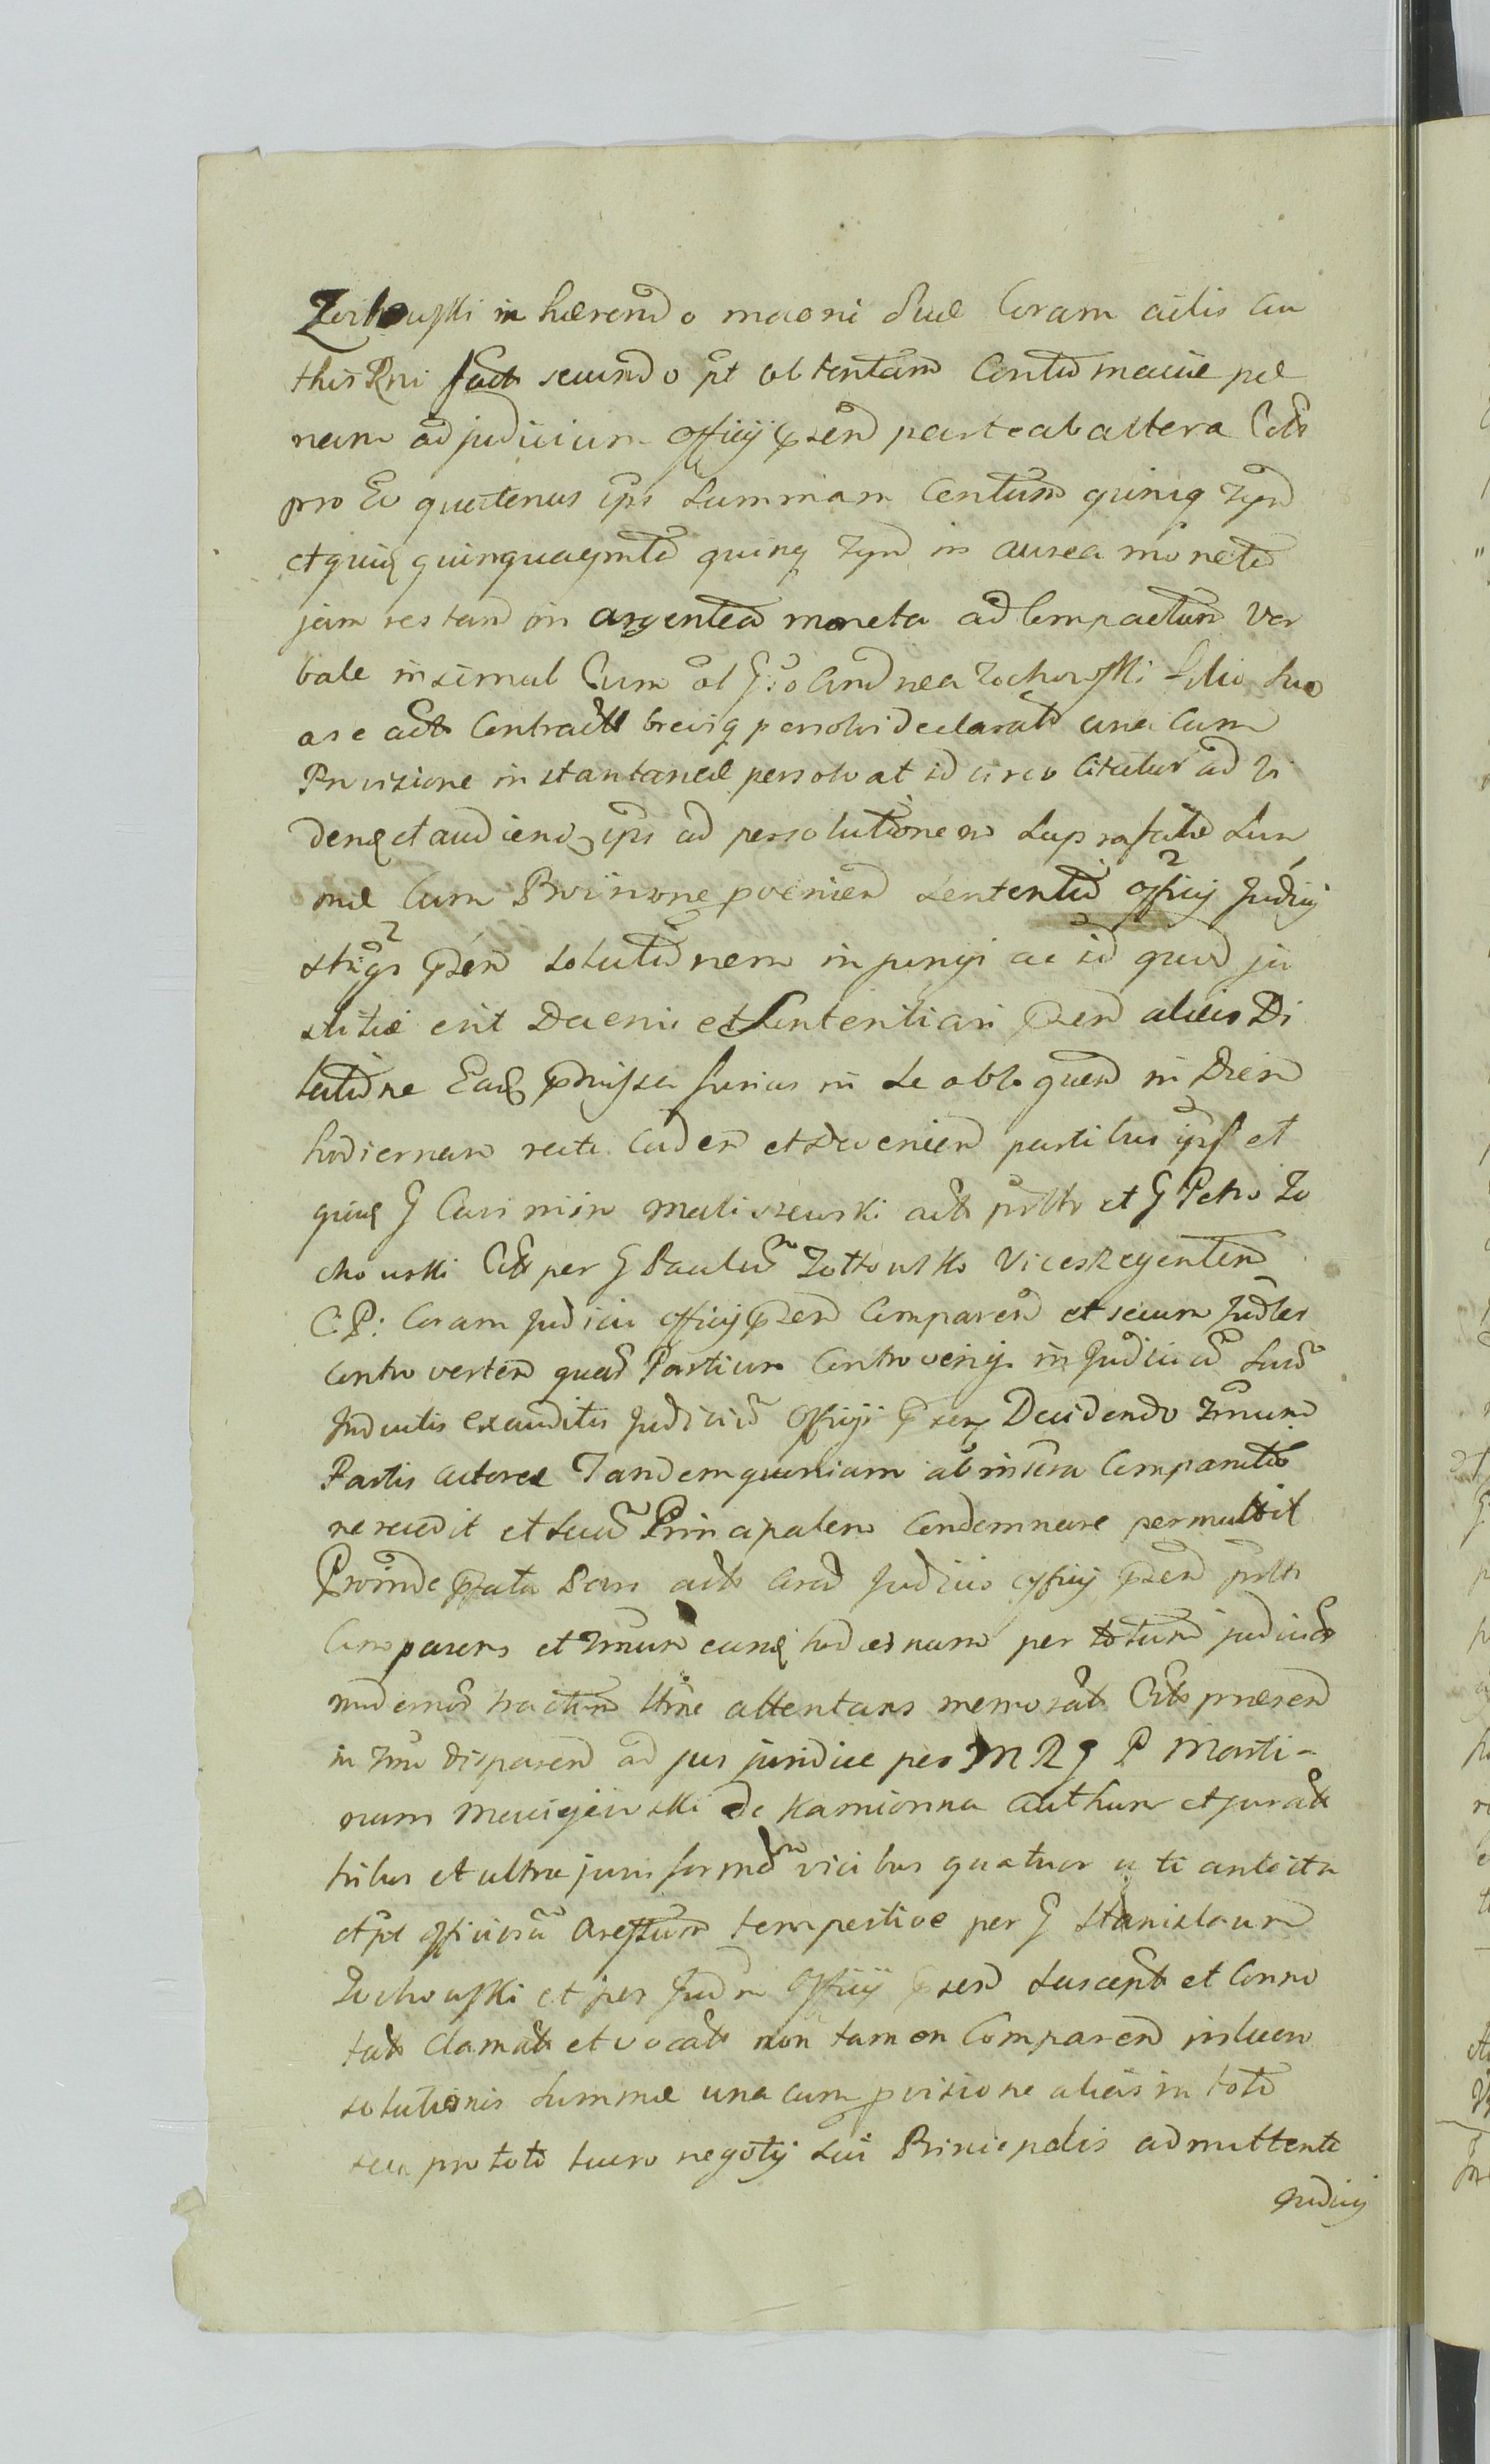 Zochowski in hærendo maoni suæ Coram actis Au
this Rni fact secundo pt obtentam Contumaciæ pæ
nam ad judicium officij pseñ parte ab altera Cits
pro Eo quatenus ips summam Centum quinq Tyn
et quinq quinquagintа quinq Tyn in aurea moneta
jam restan in argentea moneta ad Compactum Ver
bale insimul Cum ol G: o Andrea Zochowski filio suo
a se acts Contracts breviq persolvi declarats una Cum
Provisione instantaneæ persolvat id circo Citatur ad vi
denq et audienq ips ad persolutionem suprafatæ sum
mæ Cum Provisione provenien sententia officij Judicij
strigi psen solutionem injungi ac id quod ju
stitiæ erit Decerni et Sententiari psen alicis Di
latione Eaq præmissa furius in se obloquen in Diem
hodiernam recte Caden et Devenien partibus ips et
quiq G Casimiro Maliszewski act prltr et G Petro Zo
chowski Cits per G Paulum Zottowsko Vices Regentem
C: P: Coram Judicio officij psen Comparen et secum Judlr
Controverten quas Partium Controversijs in Judicio suis
Inductis exauditis Judicium Officij psen Decidendo Tmnum
Partis actoreæ Tandem quoniam ab insera Comparitio
ne recedit et suum Principalem Condemnare permittit
Proinde pfata Pars acts Cora Judicio officij psen prltr
Comparens et Tmnum eunq hodiernum per totum judicior
modernor tractum ltme attentans memorats Cits præsen
in Tmno Disparen ad jus juridice per M R G P Marti-
num Maciejewski de Kamionna authum et jurats
tribus et ultra juris formam vicibus quatuor uti antecita
et pt officiosum arestum tempestive per G Stanislaum
Zochowski et per Judm Officij psen suscept et Conno
tats Clamats et vocats non tamen Comparen in lucro
solutionis summæ una cum pvisione alias in toto
seu pro toto lucro negotij sui Principalis admittente
Judicij